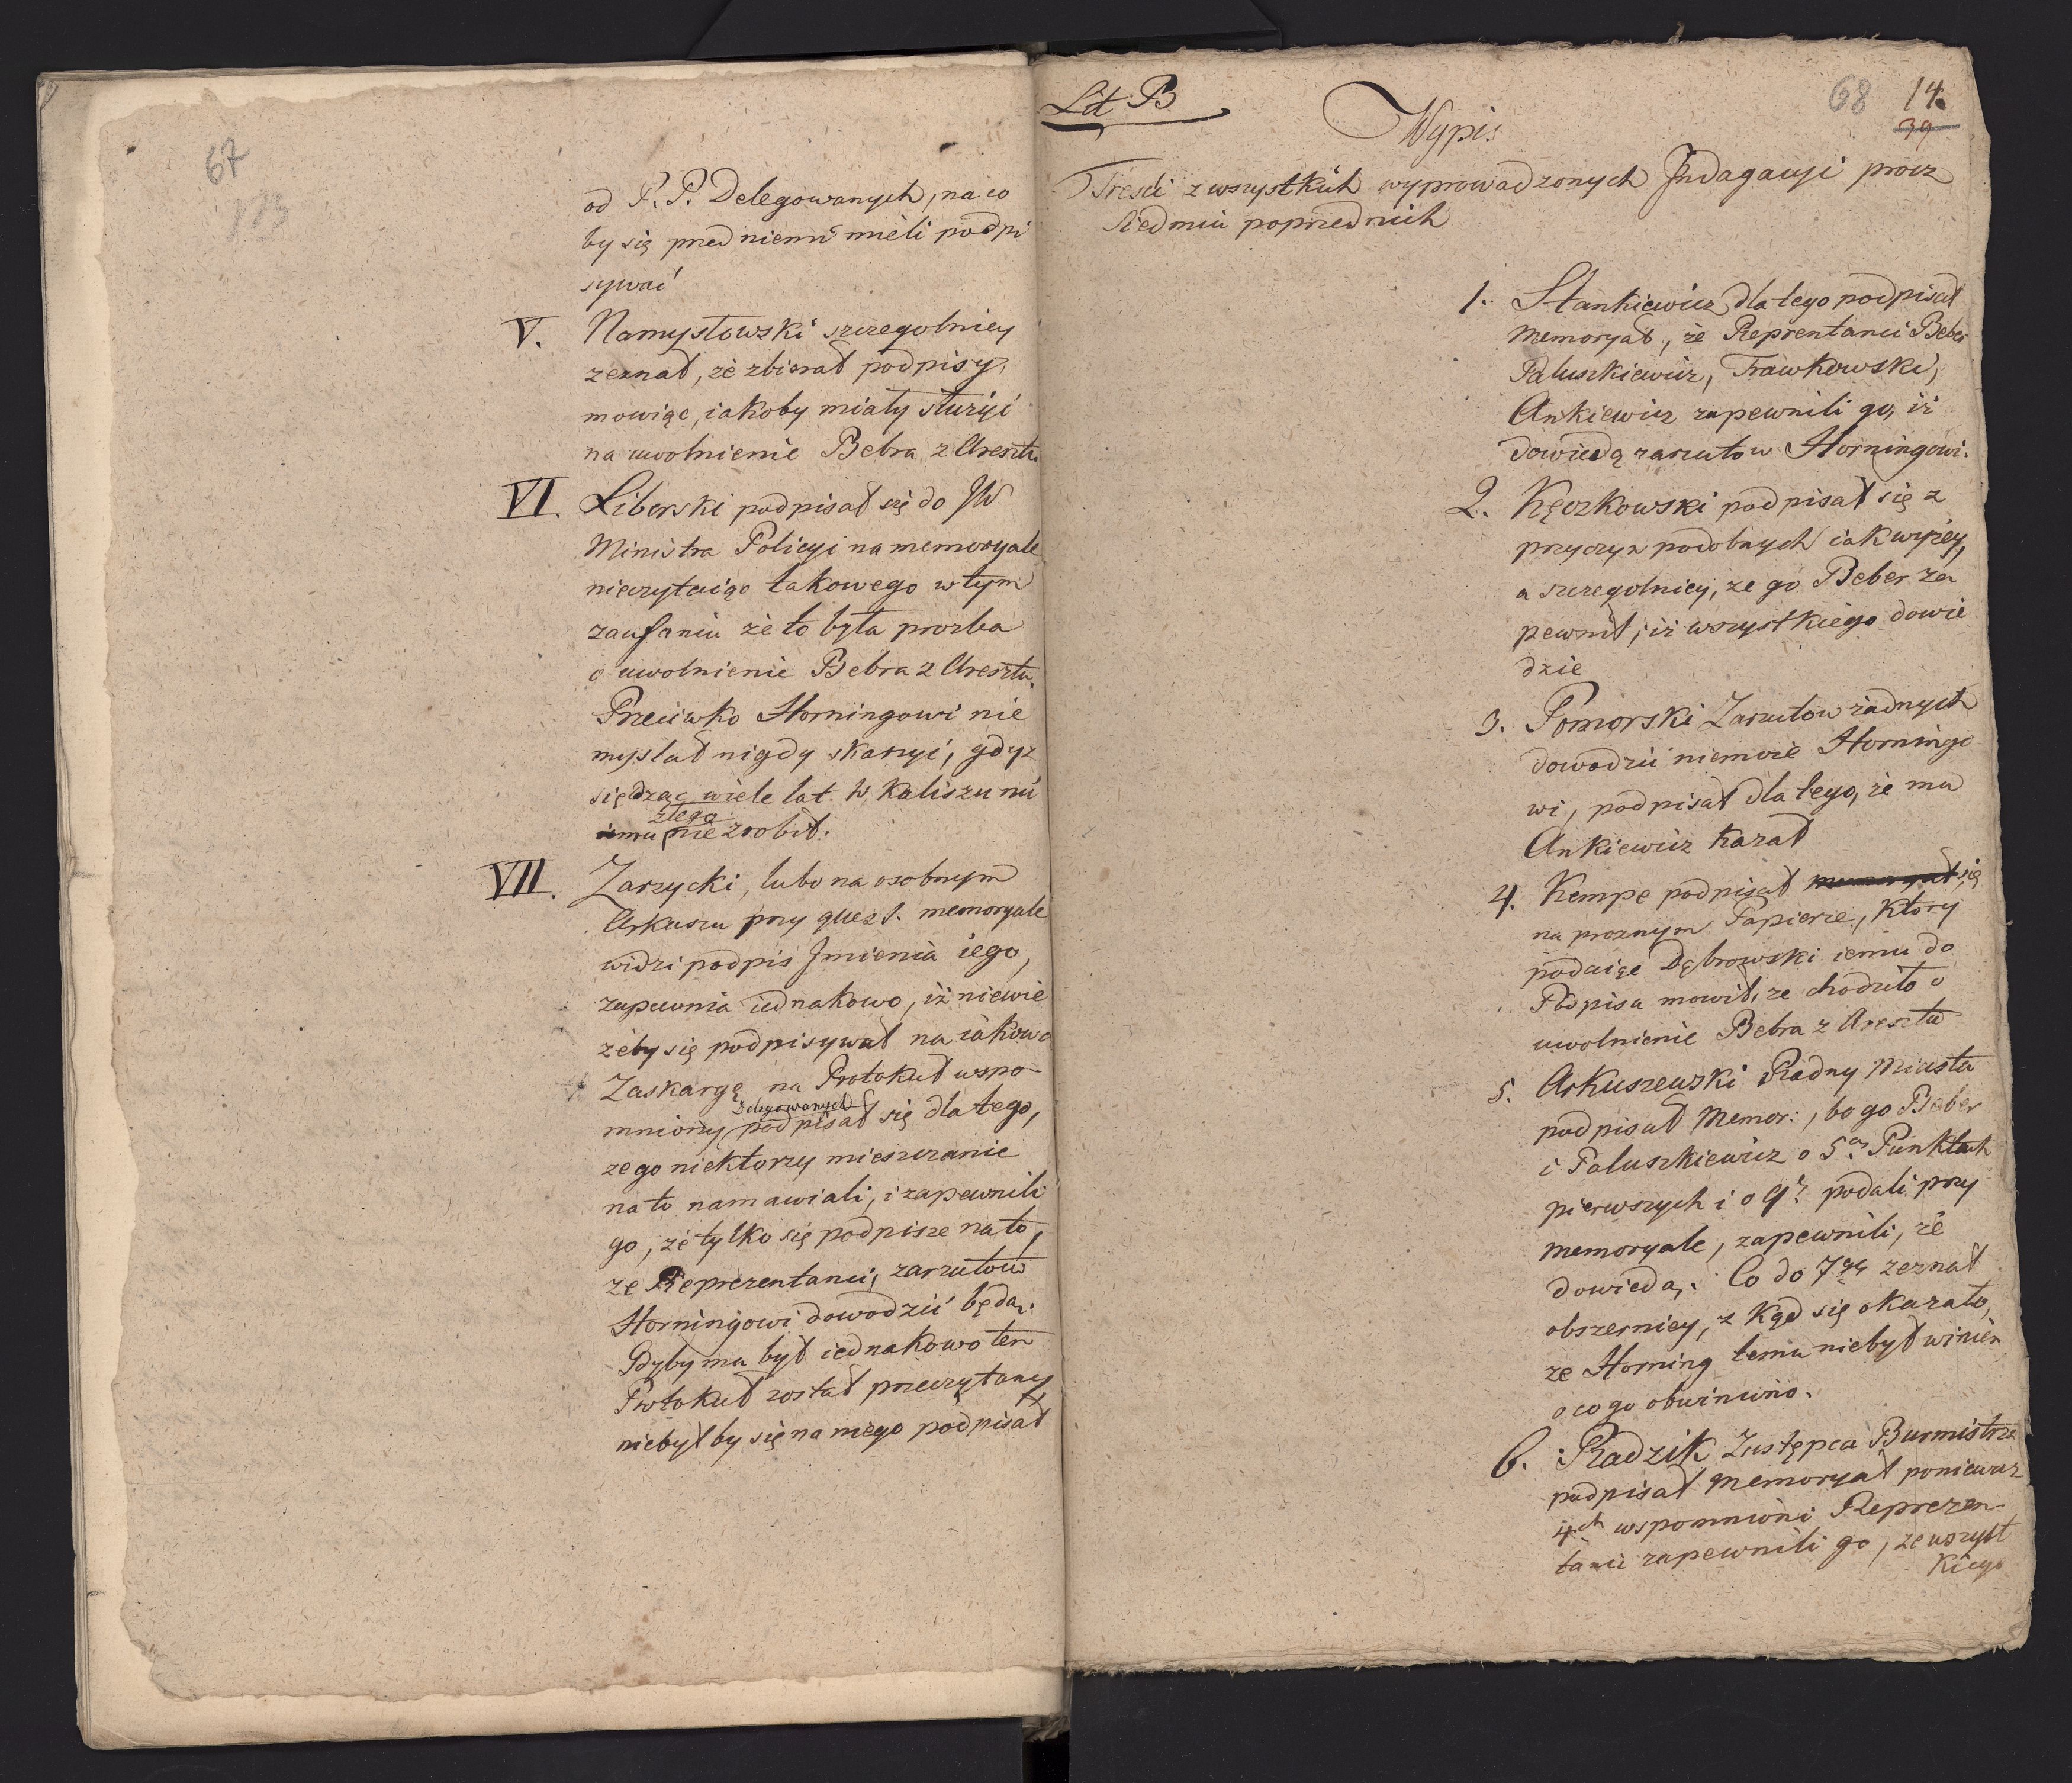 67
od P. P. Delegowanych, na co
by się przed niemi mieli podpi
sywać
V. Namysłowski szczegolniey
zeznał, że zbierał podpisy,
mowiąc, iakoby miały słurzyć
na uwolnienie Bebra z Aresztu
VI. Liberski podpisał się do JW
Ministra Policyi na memoryale
nieczytaiąc takowego w tym
zaufaniu że to była prozba
o uwolnienie Bebra z Aresztu,
Przeciwko Horningowi nie
myslał nigdy skarzyć, gdyz
siędząc wiele lat w Kaliszu nic
złego
iemu nie zrobił.
VII. Zarzycki, lubo na osobnym
Arkuszu przy quest. memoryale
widzi podpis Jmienia iego,
zapewnia iednakowo, iż niewie
żeby się podpisywał na iakowo
Zaskargę na Protokuł wspo-
Delegowanych
mniony podpisał się dla tego,
ze go niektorzy mieszczanie
na to namawiali, i zapewnili
go, że tylko się podpisze na to,
ze Reprezentanci, zarzutow
Horningowi dowodzić będą.
Gdyby mu był iednakowo ten
Protokuł został przeczytany
niebył by się na niego podpisał
Lit. B
68 14.
39
Wypis
Tresci z wszystkich wyprowadzonych Jndagacyi procz
siedmiu poprzednich
1. Stankiewicz dla tego podpisał
memoryał, że Reprentanci Beber
Paluszkiewicz, Trawkowski,
Ankiewicz zapewnili go, iż
dowiedą zarzutow Horningowi.
2. Kęczkowski podpisał się z
przyczyn podobnych iak wyżey,
a szczegolniey, ze go Beber za
pewnił, iż wszystkiego dowie
dzie
3. Pomorski Zarzutow żadnych
dowodzić niemoże Horningo
wi, podpisał dla tego, że mu
Ankiewicz kazał
4. Kempe podpisał memoryał się
na proznym Papierze, ktory
podaiąc Dąbrowski iemu do
Podpisu mowił, ze chodziło o
uwolnienie Bebra z Aresztu
5. Arkuszewski Radny Miasta
podpisał Memor:, bo go Beber
i Paluszkiewicz o 5ciu Punktach
pierwszych i o 9r podali przy
memoryale, zapewnili, że
dowiedą. Co do 7go zeznał
obszerniey, z kąd się okazało,
ze Horning temu niebył winien
o co go obwiniono.
6. Radzik Zastępca Burmistrza
podpisał memoryał poniewaz
4ch wspomnioni Reprezen-
tanci zapewnili go, ze wszyst
kiego